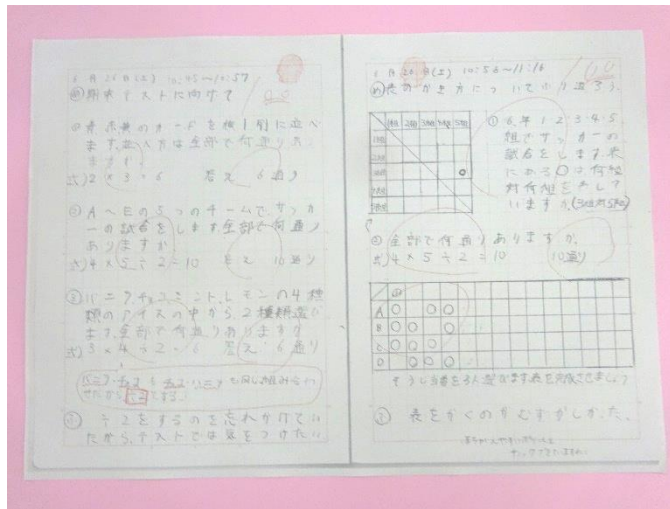 6月26日(土) 10:45～10:57
め期末テストに向けて
①赤青黄のカードを横1列に並べ
ます。並べ方は全部で何通りあ
りますか。
式)2×3=6 答え 6通り
②A～Eの5つのチームで、サッカ
ーの試合をします。全部で何通り
ありますか
式)4×5÷2=10 答え 10通り
③バニラ、チョコ、ミント、レモンの4種
類のアイスの中から、2種類選び
ます。全部で何通りありますか
式)3×4÷2=6 答え 6通り
バニラ・チョコもチョコ・バニラも同じ組み合わ
せだから÷2をする!
÷2をするのを忘れかけてい
たから、テストでは気をつけたい
10:56～11:16
め表のかき方について
100
1組 2組 3組 4組 5組
1組
2組
3組
4組
5組
①6年1・2・3・4・5
組でサッカーの
試合をします。表
にある○は何組
対何組を表して
いますか。(3組対5組)
②全部で何通りありますか。
式)4×5÷2=10 10通り
A
B
C
D
そうじ当番を3人選びます。表を完成させましょう
表をかくのがむずかしかった。